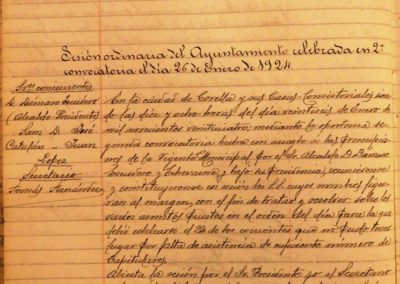 Sesión ordinaria del Ayuntamiento celebrada en 2ª
convocatoria el día 26 de Enero de 1924.
Sres concurrentes
D. Dámaso
(Alcalde Presidente)
Sam D. José
Catalán " Juan
López
Secretario
Tomás Fernández
En la ciudad de Corella y sus Casas Consistoriales sien-
do las diez y ocho horas del día veintiseis de Enero de
mil novecientos veinticuatro, mediante la oportuna se-
gunda convocatoria hecha con arreglo á las prescripcio-
nes de la vigente Municipal por el Sr. Alcalde D. Dámaso
y bajo su presidencia, reunieronse
y constituyeronse en sesión los S.S. cuyos nombres figu-
ran al margen, con el fin de tratar y resolver sobre los
varios asuntos puestos en el orden del día para la que
debió celebrarse el 24 de los corrientes que no pudo tener
lugar por falta de asistencia de suficiente número de
Capitulares.
Abierta la sesión por el Sr. Presidente yo el Secretario